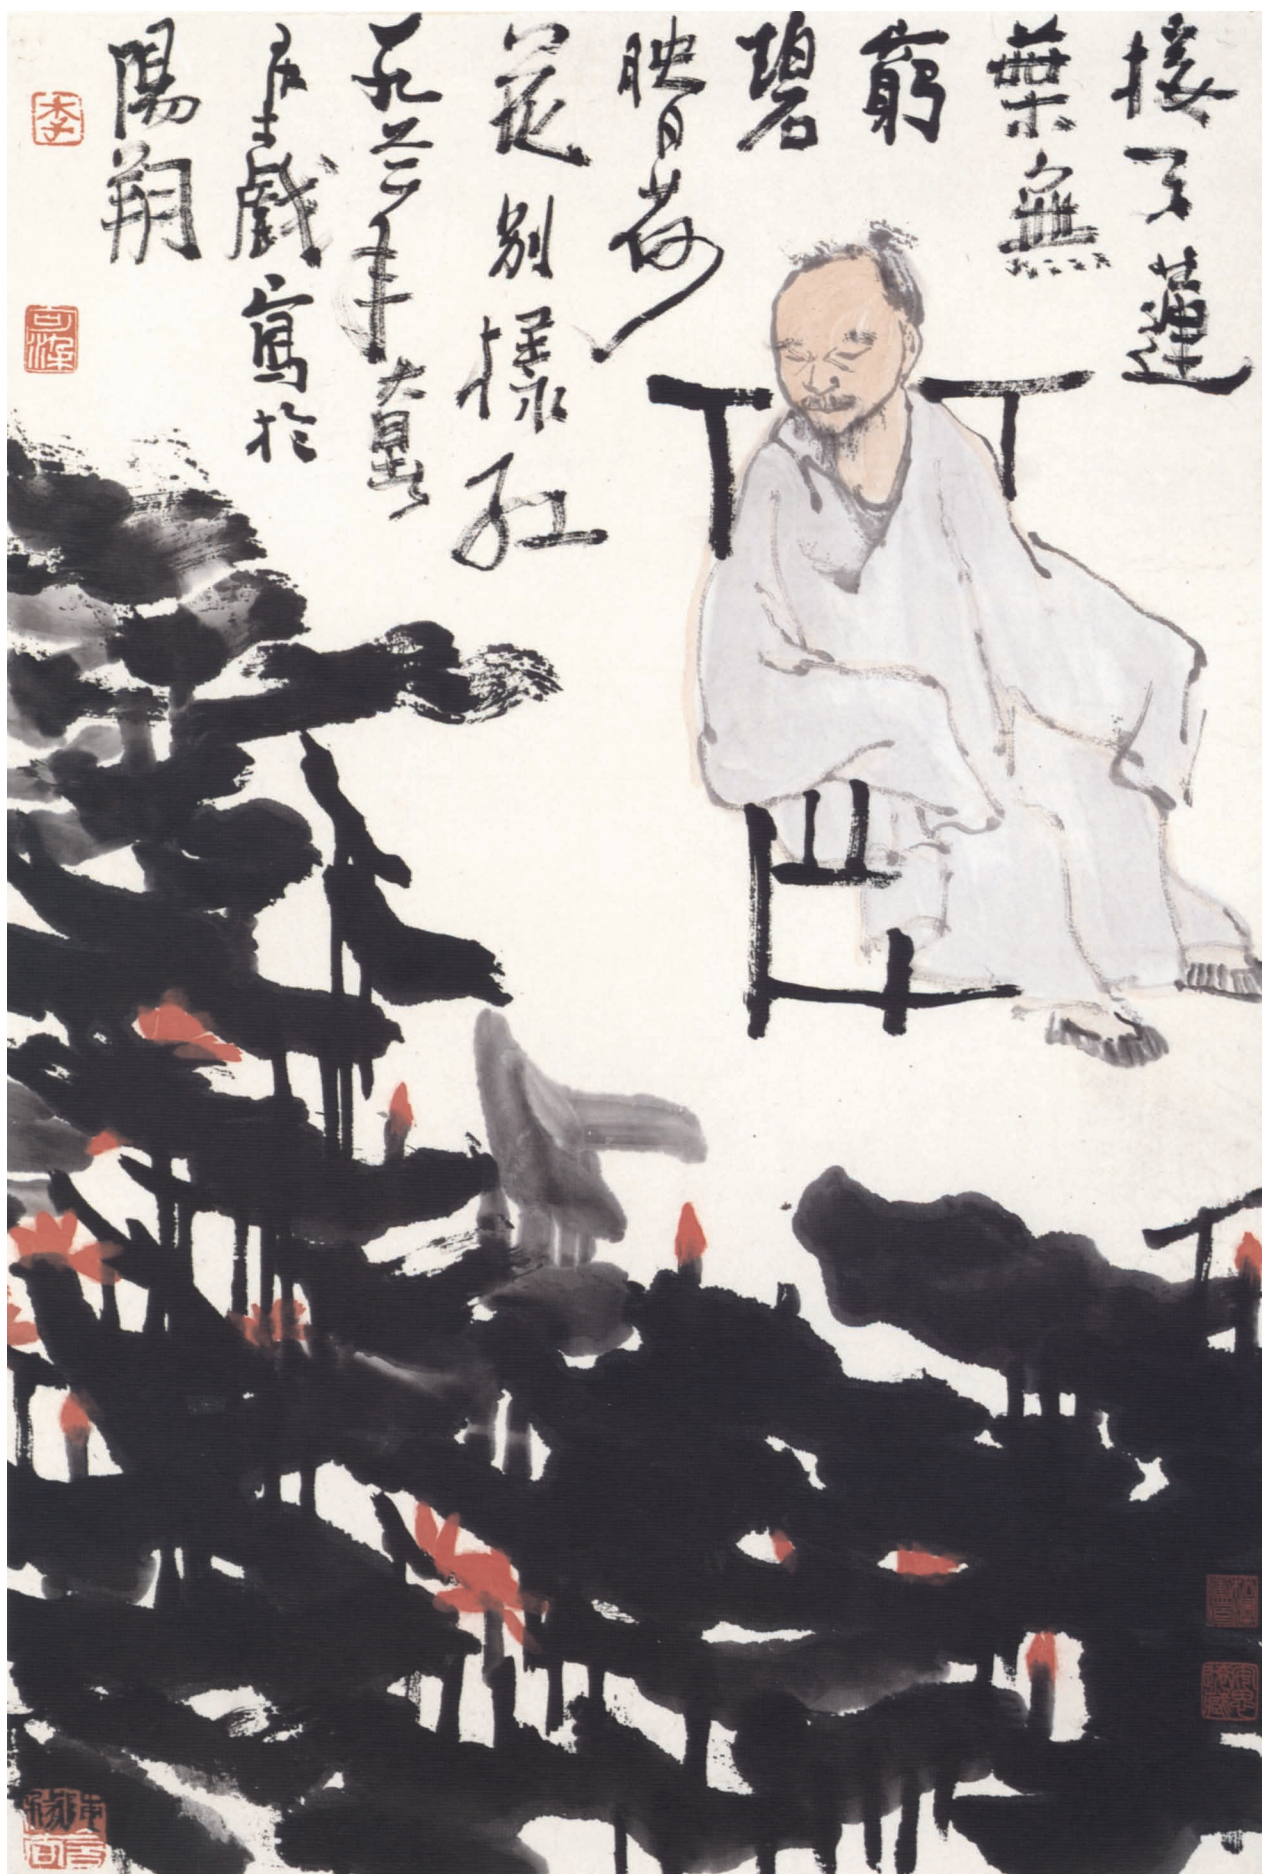 接天蓮
葉無
窮
碧
映日荷
花別樣紅
一九六二年大暑
戲寫於
陽朔
李
可染